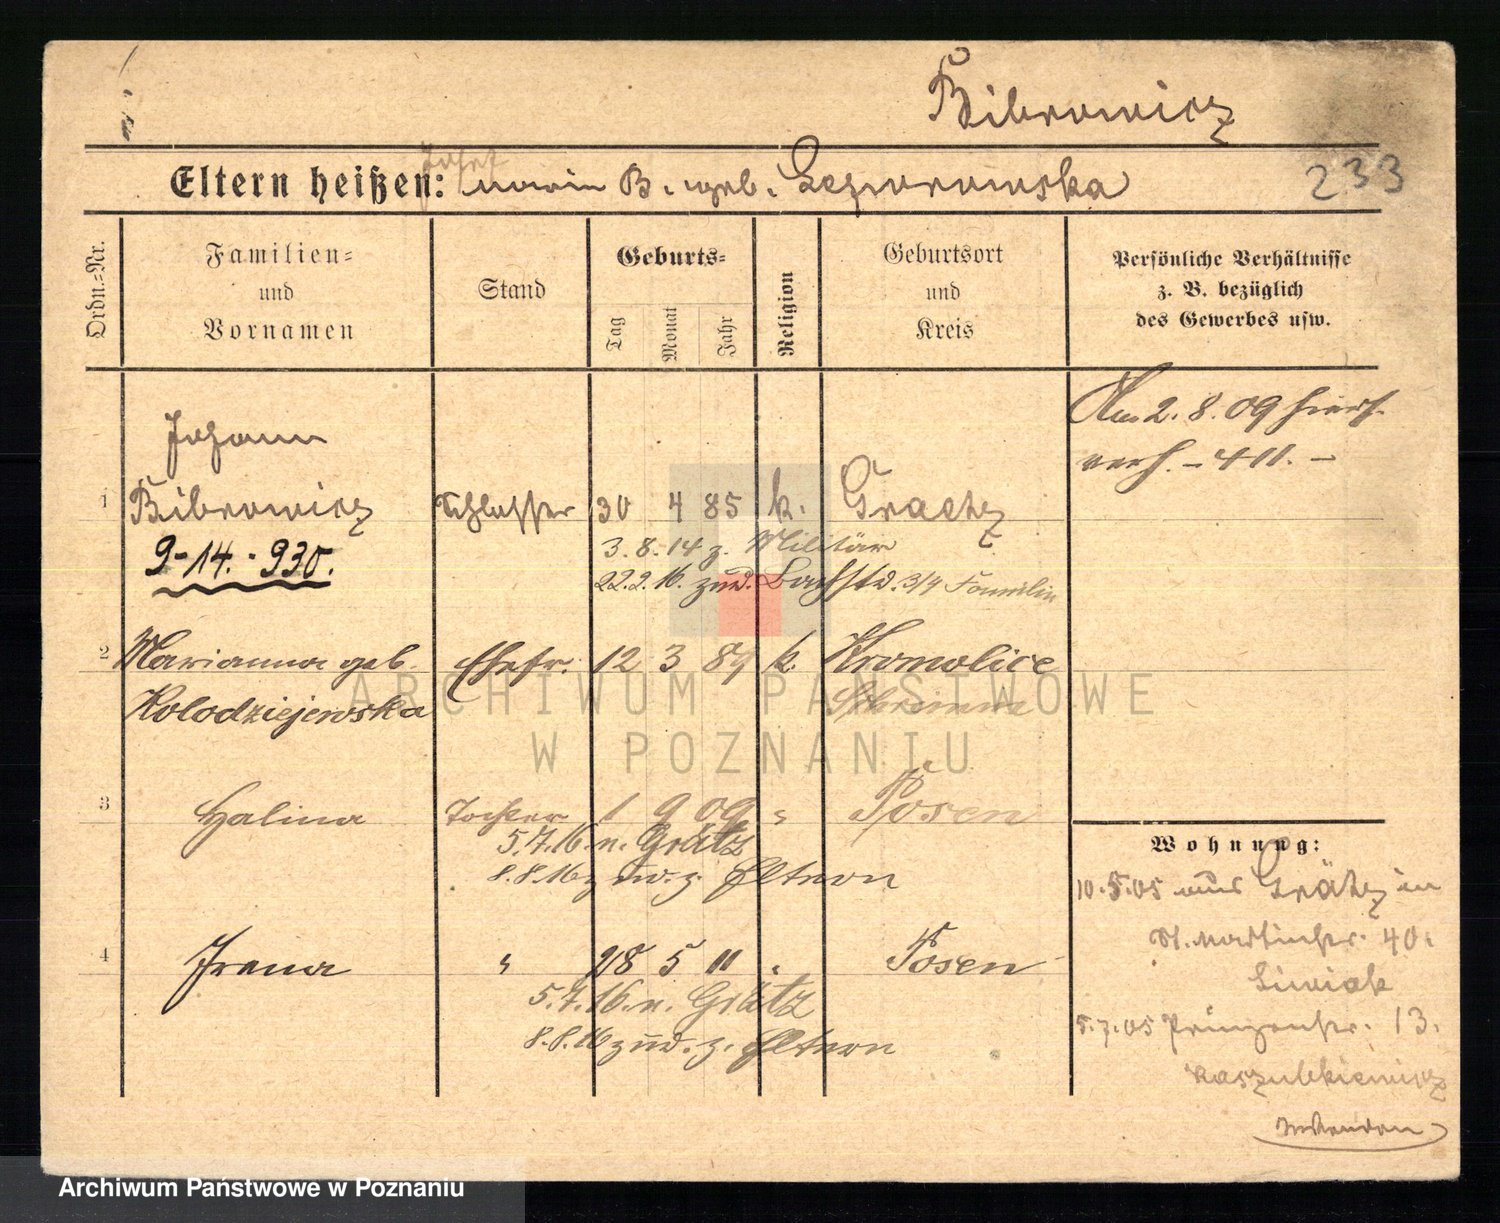 Bibrowicz
Eltern heißen: Josef
Maria B. geb.
233
Ordn.=Nr.
Familien=
und
Vornamen
Stand
Geburts=
Tag
Monat
Jahr
Religion
Geburtsort
und
Kreis
Persönliche Verhältnisse
z. B. bezüglich
des Gewerbes usw.
Am 2. 8. 09 hier
verh. - 411. -
Johann
1 Bibrowicz Schlosser 30 4 85 k. Graetz
9-14.-930.
3. 8. 14 z. Militär
22.2.16. zud. 3/4 Familie
2 Marianna geb. Ehefr. 12 3 89 k. Kromolice
Kolodziejewska Schrimm
3 Halina Tochter 1 9 09 " Posen
5.7.16. n. Grätz
8.8.16 z. Eltern
4 Irena " 28 5 11 " Posen
5.7.16. n. Grätz
8.8.16 zud. z. Eltern
Wohnung:
10.5.05 aus Grätz in
St. Martinstr. 40.
Siwiak
5.7.05 Prinzenstr. 13.
Kaszubkiewicz
ARCHIWUM PAŃSTWOWE
W POZNANIU
Archiwum Państwowe w Poznaniu